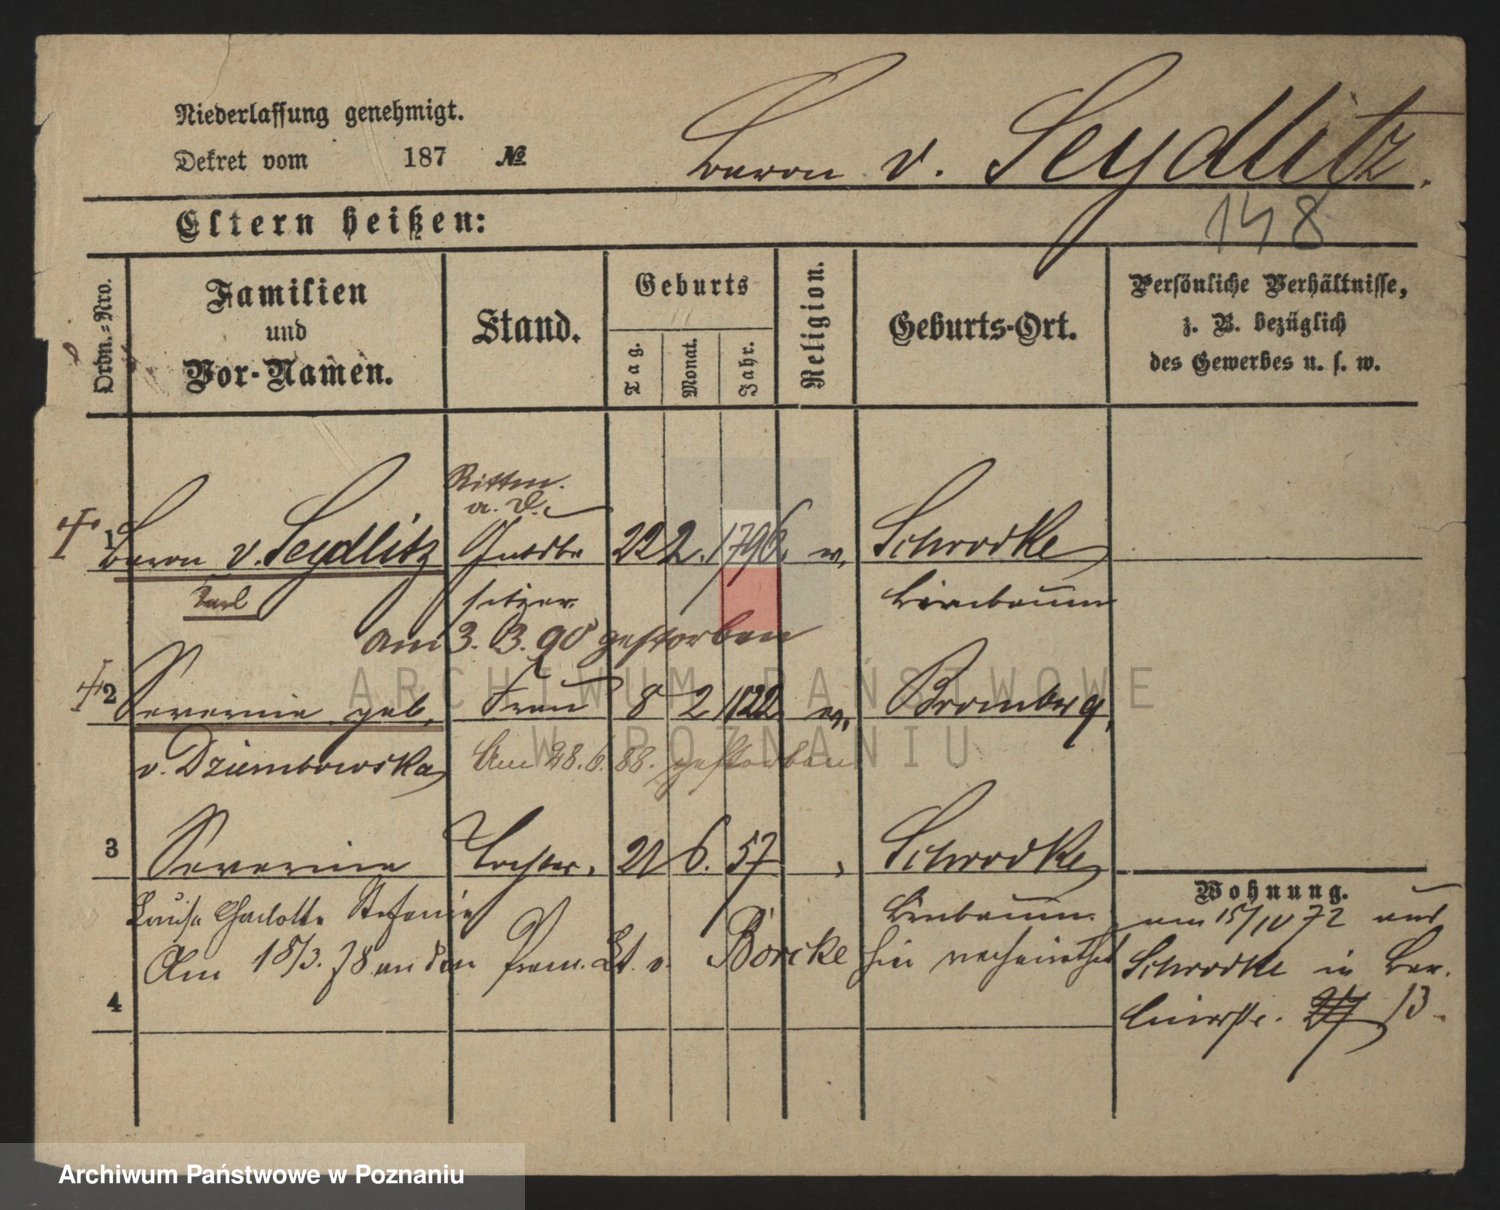 Niederlassung genehmigt.
Dekret vom 187 №
Baron v. Seydlitz.
148
Eltern heißen:
Ordn.-Nro.
Familien
und
Vor-Namen.
Stand.
Geburts
Tag.
Monat.
Jahr.
Religion.
Geburts-Ort.
Persönliche Verhältnisse,
z. B. bezüglich
des Gewerbes u. s. w.
Rittm.
a. D.
1 Baron v. Seydlitz Gutsbe 22 2. 1796 Schrodke
Karl sitzer Birnbaum
am 3. 3. 90 gestorben
2 Severine geb. Frau 8 2 1822 Bromberg
v. Dziembowska Am 28. 6. 88. gestorben
3 Severine Tochter. 21 6. 57 Schrodke
Louise Charlotte Stefanie Birnbaum
Am 18/3. 78 an den Prem. Lt. v. Borcke hier verheirathet
4
Wohnung.
am 15/IV 72 aus
Schrodke in Ber-
linerstr. 27 13.
ARCHIWUM PAŃSTWOWE
W POZNANIU
Archiwum Państwowe w Poznaniu